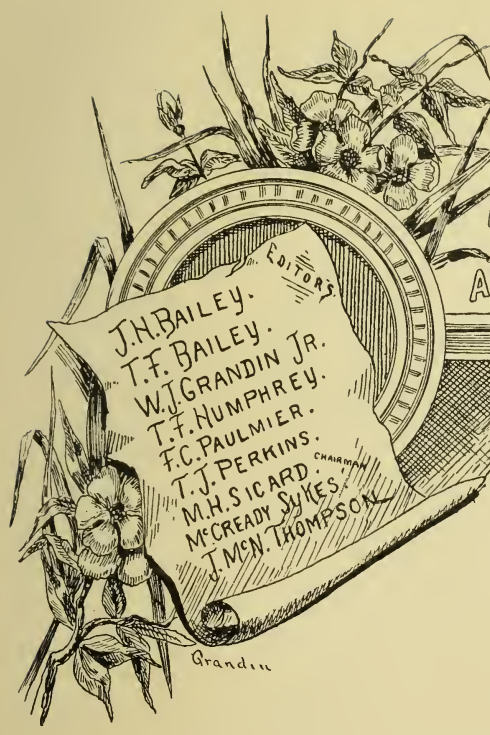 EDITORS.
J.H.BAILEY.
T.F. BAILEY.
W.J.GRANDIN JR.
T.F. HUMPHREY.
F.C. PAULMIER.
T.J. PERKINS.
CHAIRMAN
M.H. SICARD.
McCREADY SYKES.
J. McN. THOMPSON
A
Grandin